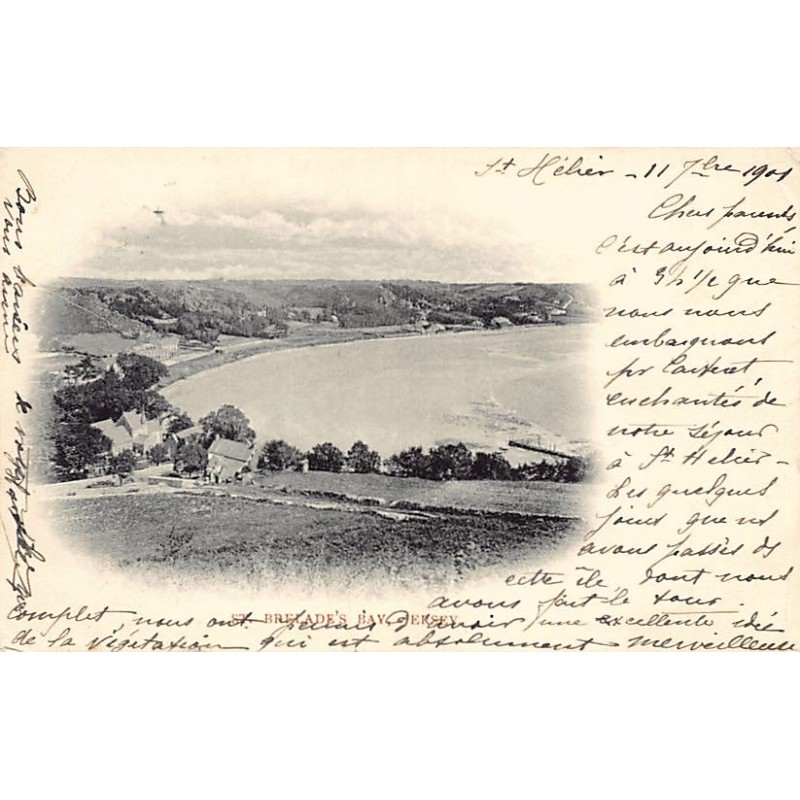 St Hélier - 11 7bre 1901
Chers parents
C'est aujourd'hui
à 9h 1/2 que
nous nous
embarquons
pr Carteret
enchantés de
notre séjour
à St Helier -
Les quelques
jours que ns
avons passés ds
cette île, dont nous
avons fait le tour
complet, nous ont permis d'avoir une excellente idée
de la végétation qui est absolument merveilleuse
Bons baisers de
vous aimé
ST. BRELADE'S BAY, JERSEY.